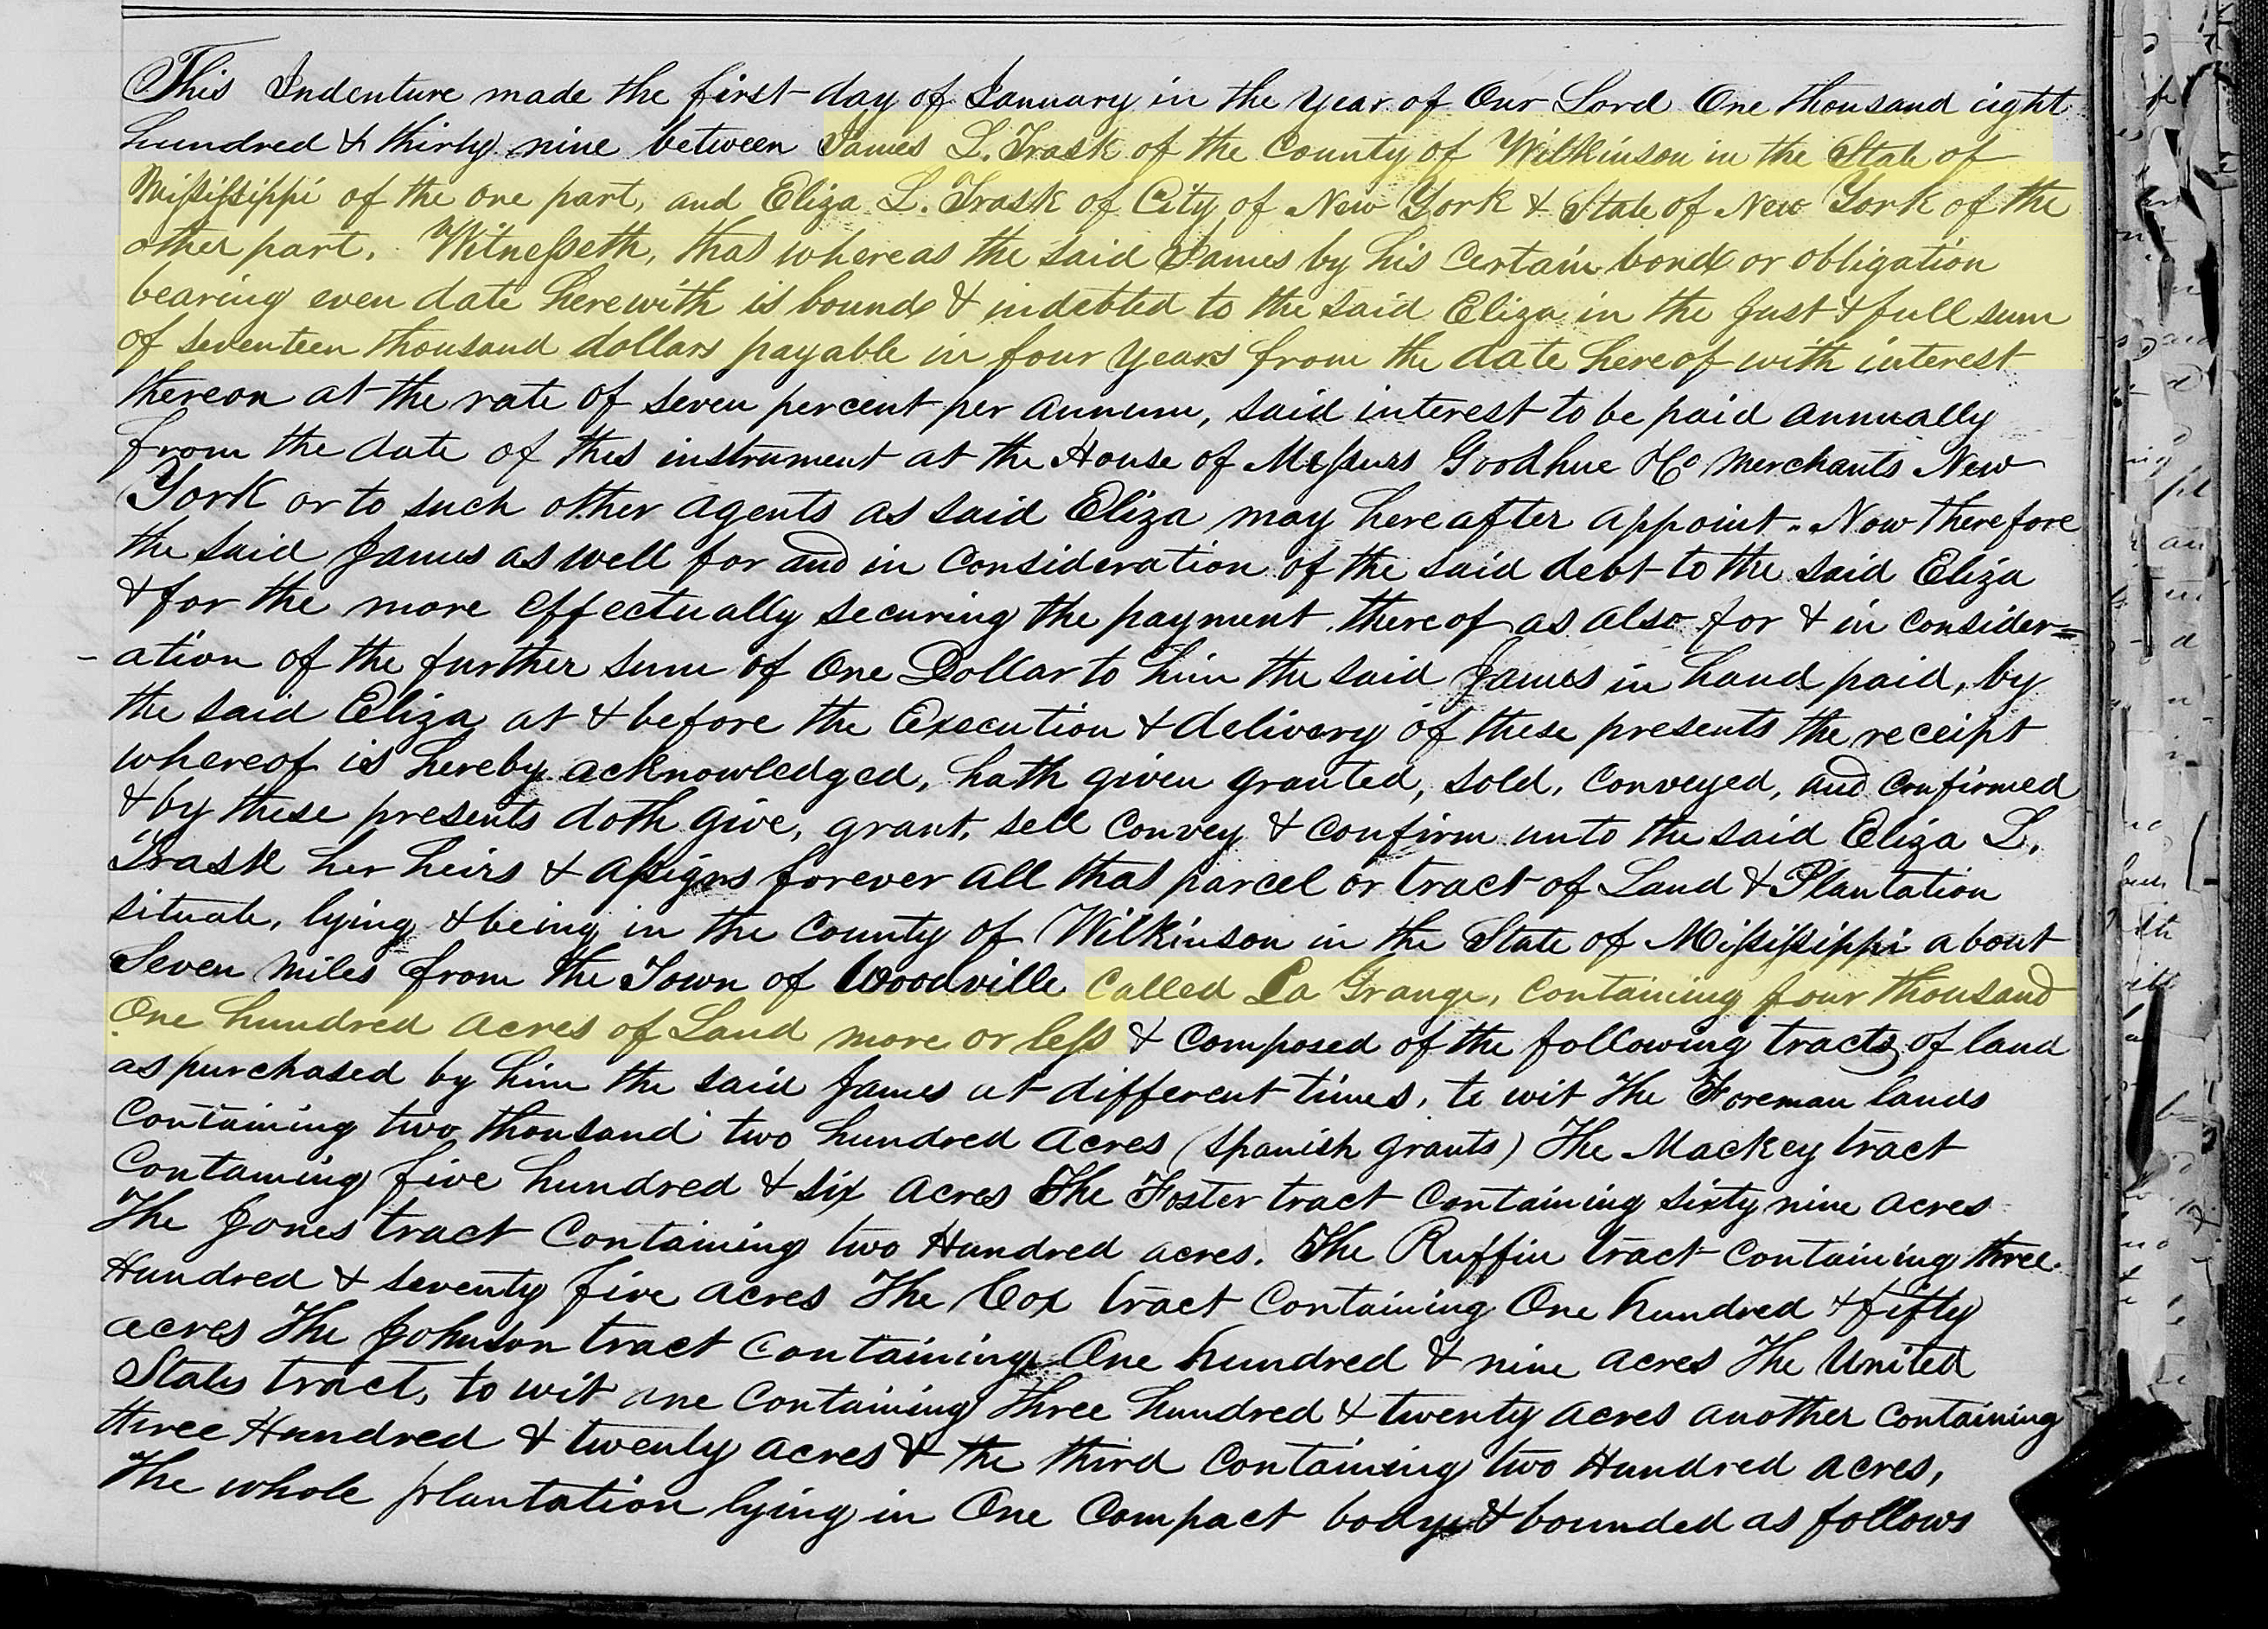 This Indenture made the first day of January in the Year of Our Lord One thousand eight
hundred & thirty nine between James L. Trask of the County of Wilkinson in the State of
Mississippi of the one part, and Eliza L. Trask of City of New York & State of New York of the
other part. Witnesseth, that whereas the said James by his certain bond or obligation
bearing even date herewith is bound & indebted to the said Eliza in the just & full sum
of seventeen thousand dollars payable in four years from the date hereof with interest
thereon at the rate of seven percent per annum, said interest to be paid annually
from the date of this instrument at the House of Messurs Goodhue & Co Merchants New
York or to such other agents as said Eliza may hereafter appoint. Now therefore
the said James as well for and in consideration of the said debt to the said Eliza
& for the more effectually securing the payment thereof as also for & in consider=
-ation of the further sum of One Dollar to him the said James in hand paid, by
the said Eliza at & before the Execution & delivery of these presents the receipt
whereof is hereby acknowledged, hath given granted, sold, conveyed, and confirmed
& by these presents doth give, grant, sell convey & confirm unto the said Eliza L.
Trask her heirs & assigns forever all that parcel or tract of Land & Plantation
situate, lying & being in the County of Wilkinson in the State of Mississippi about
Seven miles from the Town of Woodville Called La Grange, containing four thousand
One hundred acres of Land more or less & composed of the following tracts of land
as purchased by him the said James at different times, to wit The Foreman lands
Containing two thousand two hundred acres (Spanish grants) The Mackey tract
Containing five hundred & six acres The Foster tract Containing sixty nine acres
The Jones tract Containing two Hundred acres. The Ruffin tract containing three
Hundred & seventy five acres The Cox tract Containing One hundred & fifty
acres The Johnson tract containing One hundred & nine acres The United
States tract, to wit one Containing three hundred & twenty acres another containing
three Hundred & twenty acres & the third Containing two Hundred acres,
The whole plantation lying in One Compact body & bounded as follows